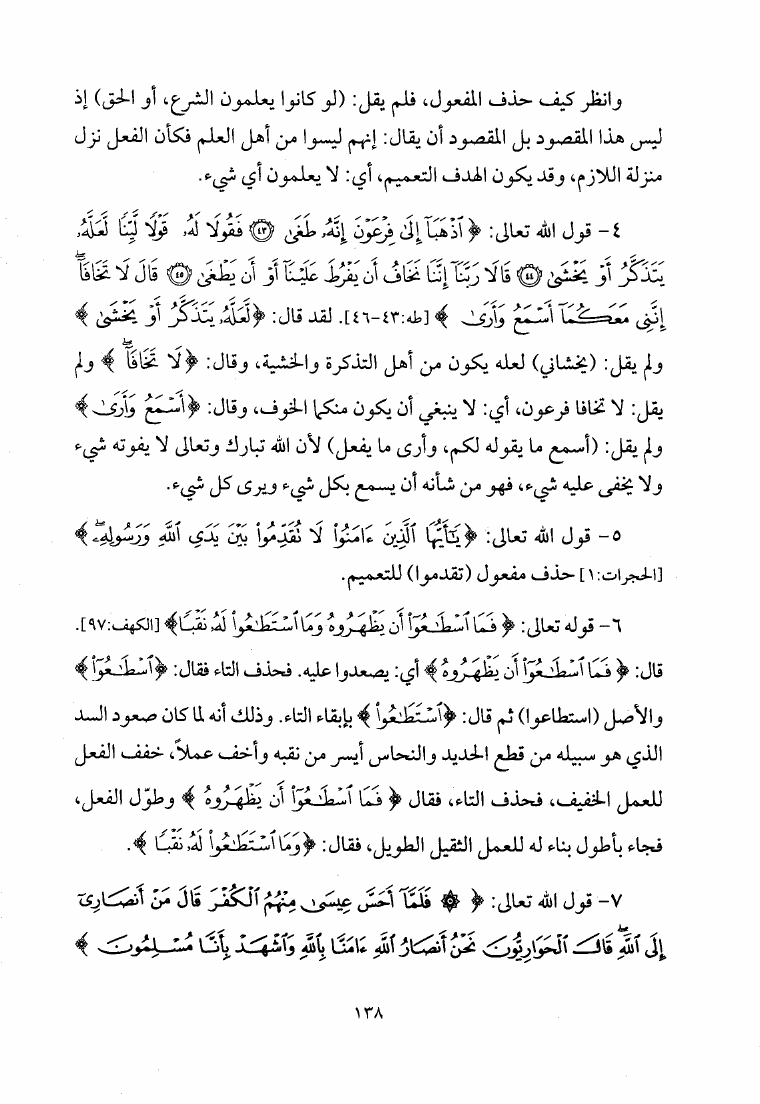 وانظر كيف حذف المفعول، فلم يقل: (لو كانوا يعلمون الشرع، أو الحق) إذ
ليس هذا المقصود بل المقصود أن يقال: إنهم ليسوا من أهل العلم فكأن الفعل نزل
منزلة اللازم، وقد يكون الهدف التعميم، أي: لا يعلمون أي شيء.
٤- قول الله تعالى: ﴿ ٱذْهَبَآ إِلَىٰ فِرْعَوْنَ إِنَّهُۥ طَغَىٰ ﴿٤٣﴾ فَقُولَا لَهُۥ قَوْلًا لَّيِّنًا لَّعَلَّهُۥ
يَتَذَكَّرُ أَوْ يَخْشَىٰ ﴿٤٤﴾ قَالَا رَبَّنَآ إِنَّنَا نَخَافُ أَن يَفْرُطَ عَلَيْنَآ أَوْ أَن يَطْغَىٰ ﴿٤٥﴾ قَالَ لَا تَخَافَآ ۖ
إِنَّنِى مَعَكُمَآ أَسْمَعُ وَأَرَىٰ ﴾ [طه:٤٣-٤٦]. لقد قال: ﴿لَّعَلَّهُۥ يَتَذَكَّرُ أَوْ يَخْشَىٰ ﴾
ولم يقل: (يخشاني) لعله يكون من أهل التذكرة والخشية، وقال: ﴿ لَا تَخَافَآ ۖ ﴾ ولم
يقل: لا تخافا فرعون، أي: لا ينبغي أن يكون منكما الخوف، وقال: ﴿أَسْمَعُ وَأَرَىٰ ﴾
ولم يقل: (أسمع ما يقوله لكم، وأرى ما يفعل) لأن الله تبارك وتعالى لا يفوته شيء
ولا يخفى عليه شيء، فهو من شأنه أن يسمع بكل شيء ويرى كل شيء.
٥- قول الله تعالى: ﴿يَٰٓأَيُّهَا ٱلَّذِينَ ءَامَنُوا۟ لَا تُقَدِّمُوا۟ بَيْنَ يَدَىِ ٱللَّهِ وَرَسُولِهِۦ ۖ ﴾
[الحجرات:١] حذف مفعول (تقدموا) للتعميم.
٦- قوله تعالى: ﴿ فَمَا ٱسْطَٰعُوٓا۟ أَن يَظْهَرُوهُ وَمَا ٱسْتَطَٰعُوا۟ لَهُۥ نَقْبًا﴾ [الكهف:٩٧].
قال: ﴿ فَمَا ٱسْطَٰعُوٓا۟ أَن يَظْهَرُوهُ ﴾ أي: يصعدوا عليه. فحذف التاء فقال: ﴿ٱسْطَٰعُوٓا۟ ﴾
والأصل (استطاعوا) ثم قال: ﴿ٱسْتَطَٰعُوا۟ ﴾ بإبقاء التاء. وذلك أنه لما كان صعود السد
الذي هو سبيله من قطع الحديد والنحاس أيسر من نقبه وأخف عملاً، خفف الفعل
للعمل الخفيف، فحذف التاء، فقال ﴿ فَمَا ٱسْطَٰعُوٓا۟ أَن يَظْهَرُوهُ ﴾ وطوّل الفعل،
فجاء بأطول بناء له للعمل الثقيل الطويل، فقال: ﴿وَمَا ٱسْتَطَٰعُوا۟ لَهُۥ نَقْبًا ﴾.
٧- قول الله تعالى: ﴿ ۞ فَلَمَّآ أَحَسَّ عِيسَىٰ مِنْهُمُ ٱلْكُفْرَ قَالَ مَنْ أَنصَارِىٓ
إِلَى ٱللَّهِ ۖ قَالَ ٱلْحَوَارِيُّونَ نَحْنُ أَنصَارُ ٱللَّهِ ءَامَنَّا بِٱللَّهِ وَٱشْهَدْ بِأَنَّا مُسْلِمُونَ ﴾
١٣٨